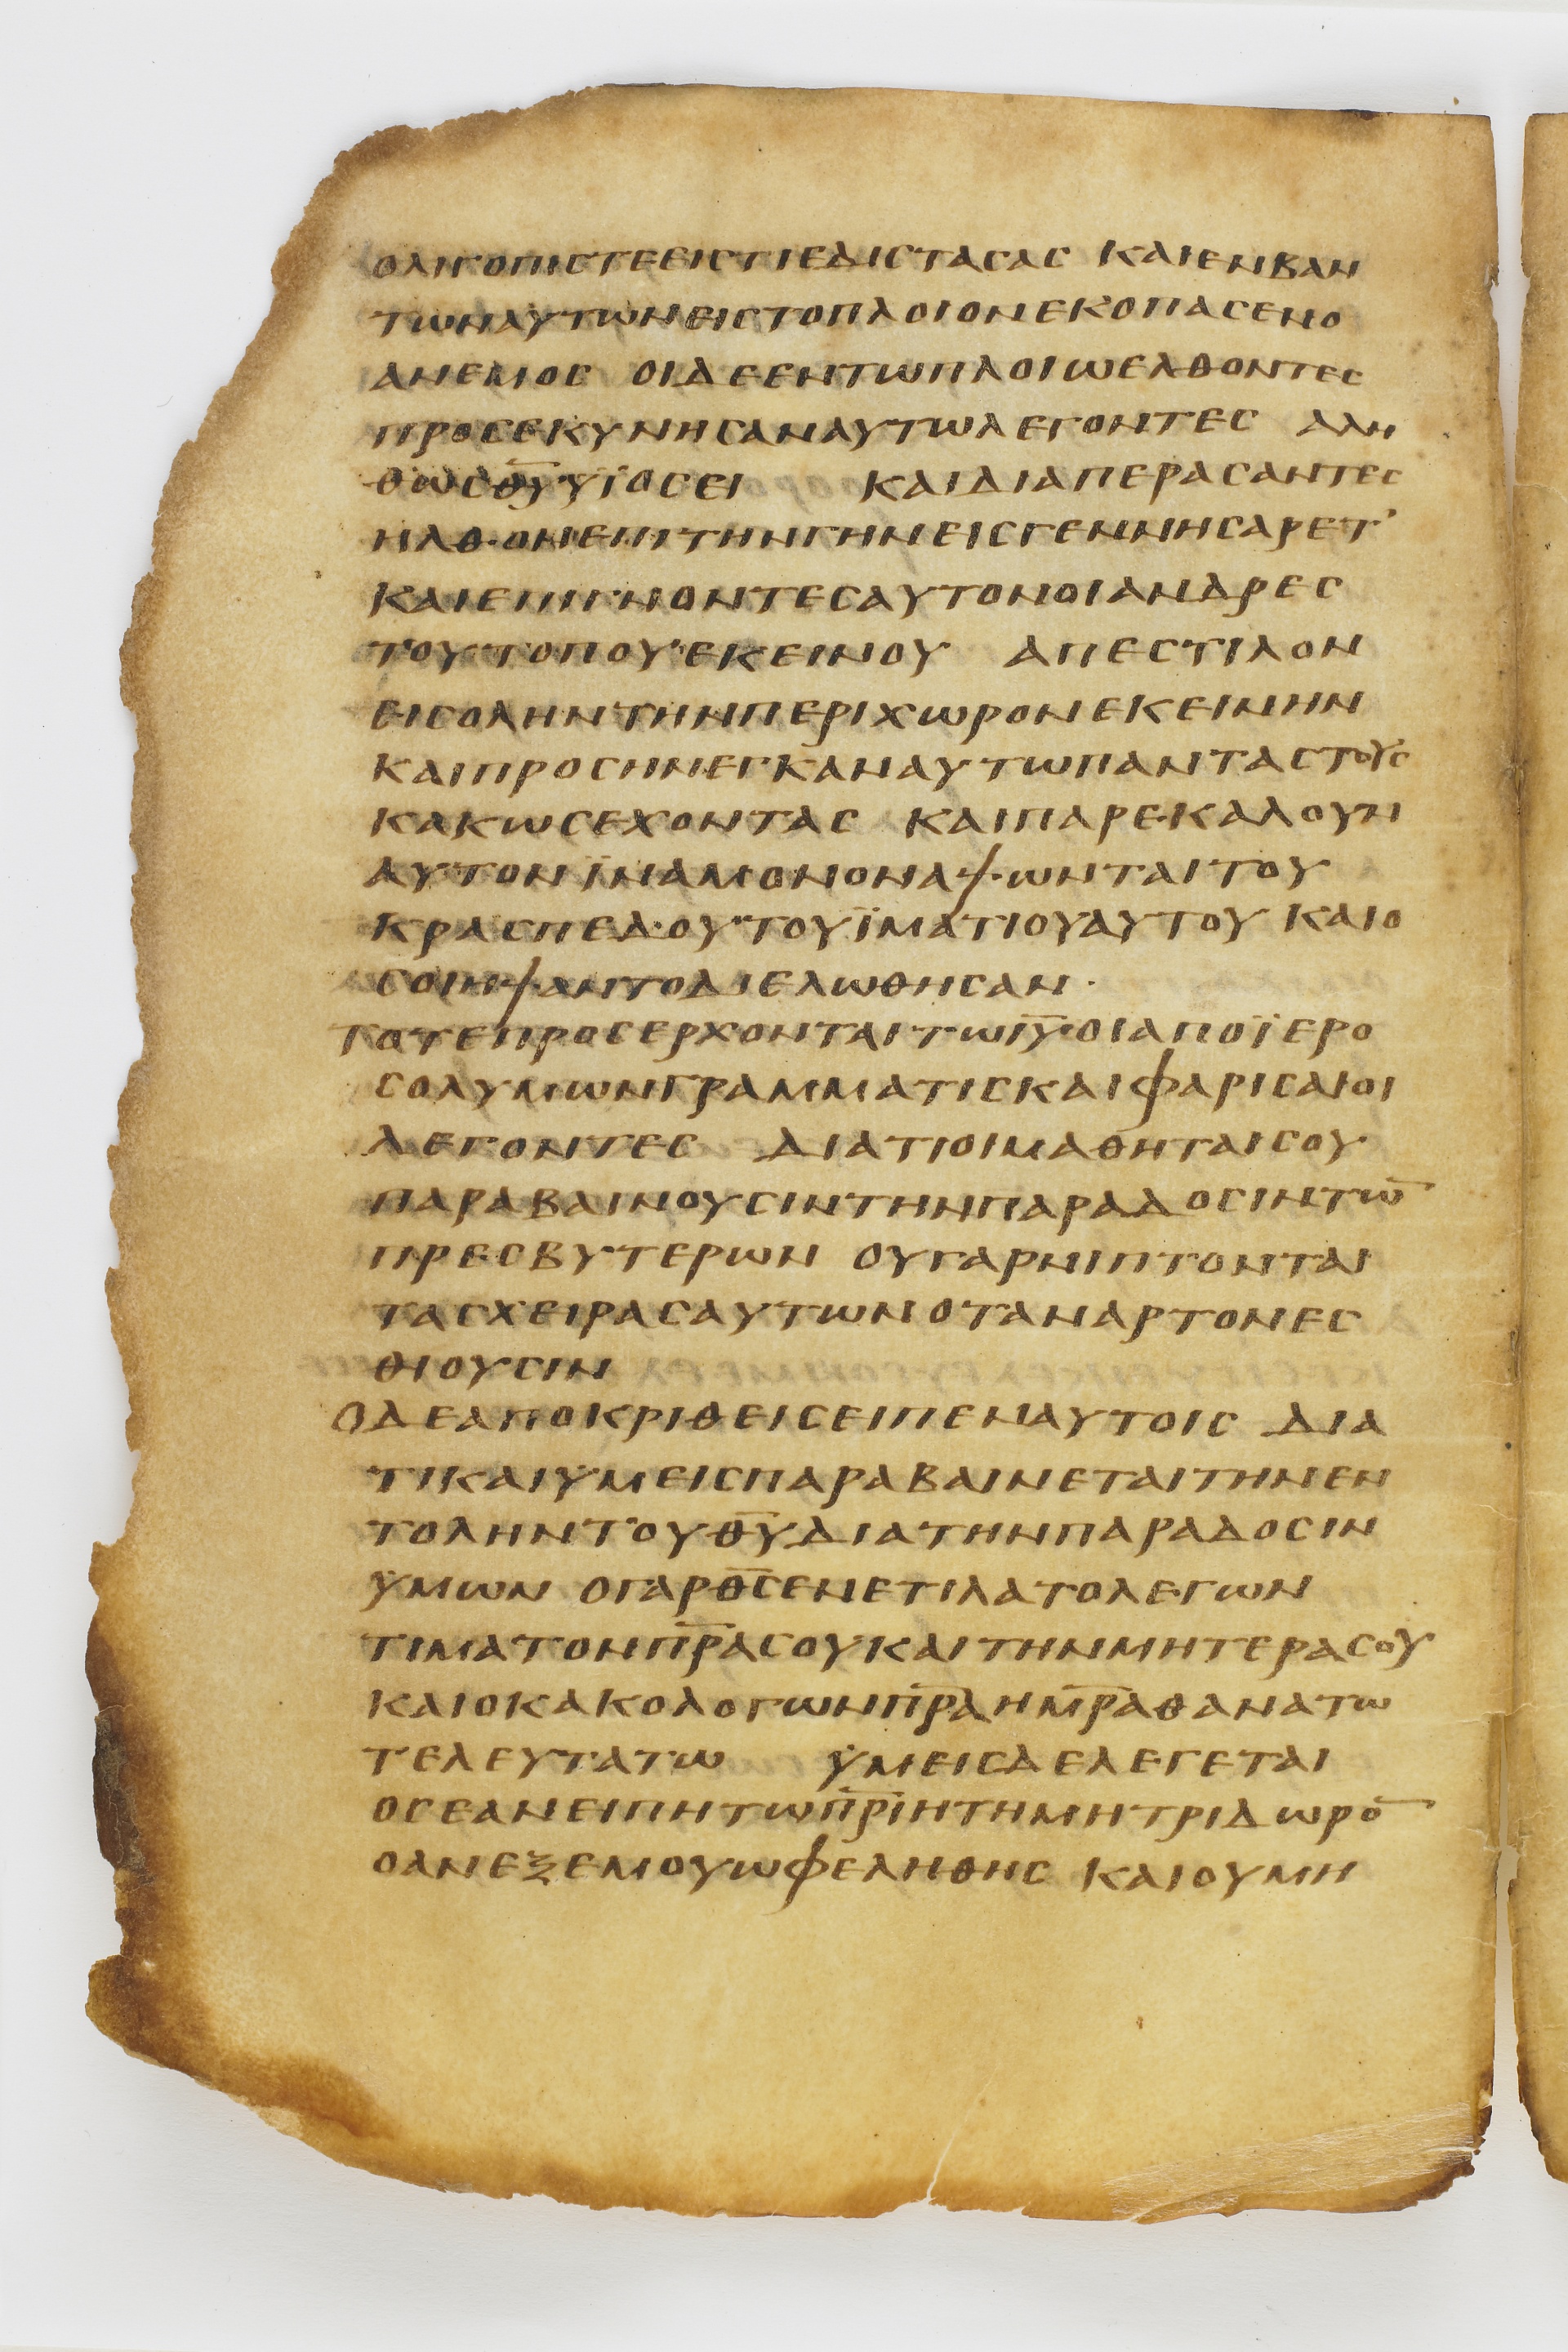 ολιγοπιστεειστιεδιστασας καιενβαν
τωναυτωνειστοπλοιονεκοπασενο
ανεμος οιδεεντωπλοιωελθοντες
προσεκυνησαναυτωλεγοντες αλη
θωςθ̅υ̅υϊοσει καιδιαπερασαντες
ηλθονεπιτηνγηνεισγεννησαρετ’
καιεπιγνοντεσαυτονοιανδρες
τουτοπουεκεινου απεστιλον
εισοληντηνπεριχωρονεκεινην
καιπροσηνεγκαναυτωπανταστους
κακωσεχοντας καιπαρεκαλουν
αυτονϊναμονοναψωνταιτου
κρασπεδουτουϊματιουαυτου καιο
σοιηψαντοδιεσωθησαν·
τοτεπροσερχονταιτωι̅υ̅οιαποϊερο
σολυμωνγραμματισκαιφαρισαιοι
λεγοντες διατιοιμαθηταισου
παραβαινουσιντηνπαραδοσιντω̅
πρεσβυτερων ουγαρνιπτονται
τασχειρασαυτωνοταναρτονεσ
θιουσιν
οδεαποκριθεισειπεναυτοις δια
τικαιϋμεισπαραβαινεταιτηνεν
τοληντουθ̅υ̅διατηνπαραδοσιν
ϋμων ογαρθ̅σ̅ενετιλατολεγων
τιματονπ̅ρ̅α̅σουκαιτηνμητερασου
καιοκακολογωνπ̅ρ̅α̅ημ̅ρ̅α̅θανατω
τελευτατω ϋμεισδελεγεται
οσεανειπητωπ̅ρ̅ι̅ητημητριδωρο̅
οανεξεμουωφεληθης καιουμη